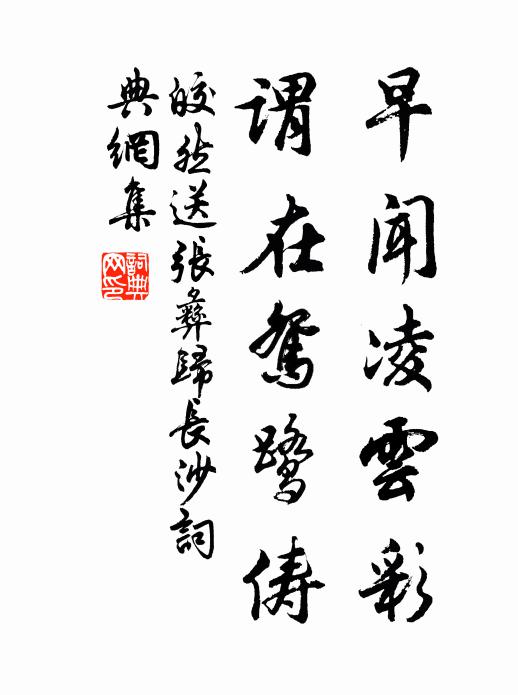 早聞凌雲彩
謂在鴛鷺儔
皎然送張彝歸長沙詞
典網集
詞典網印